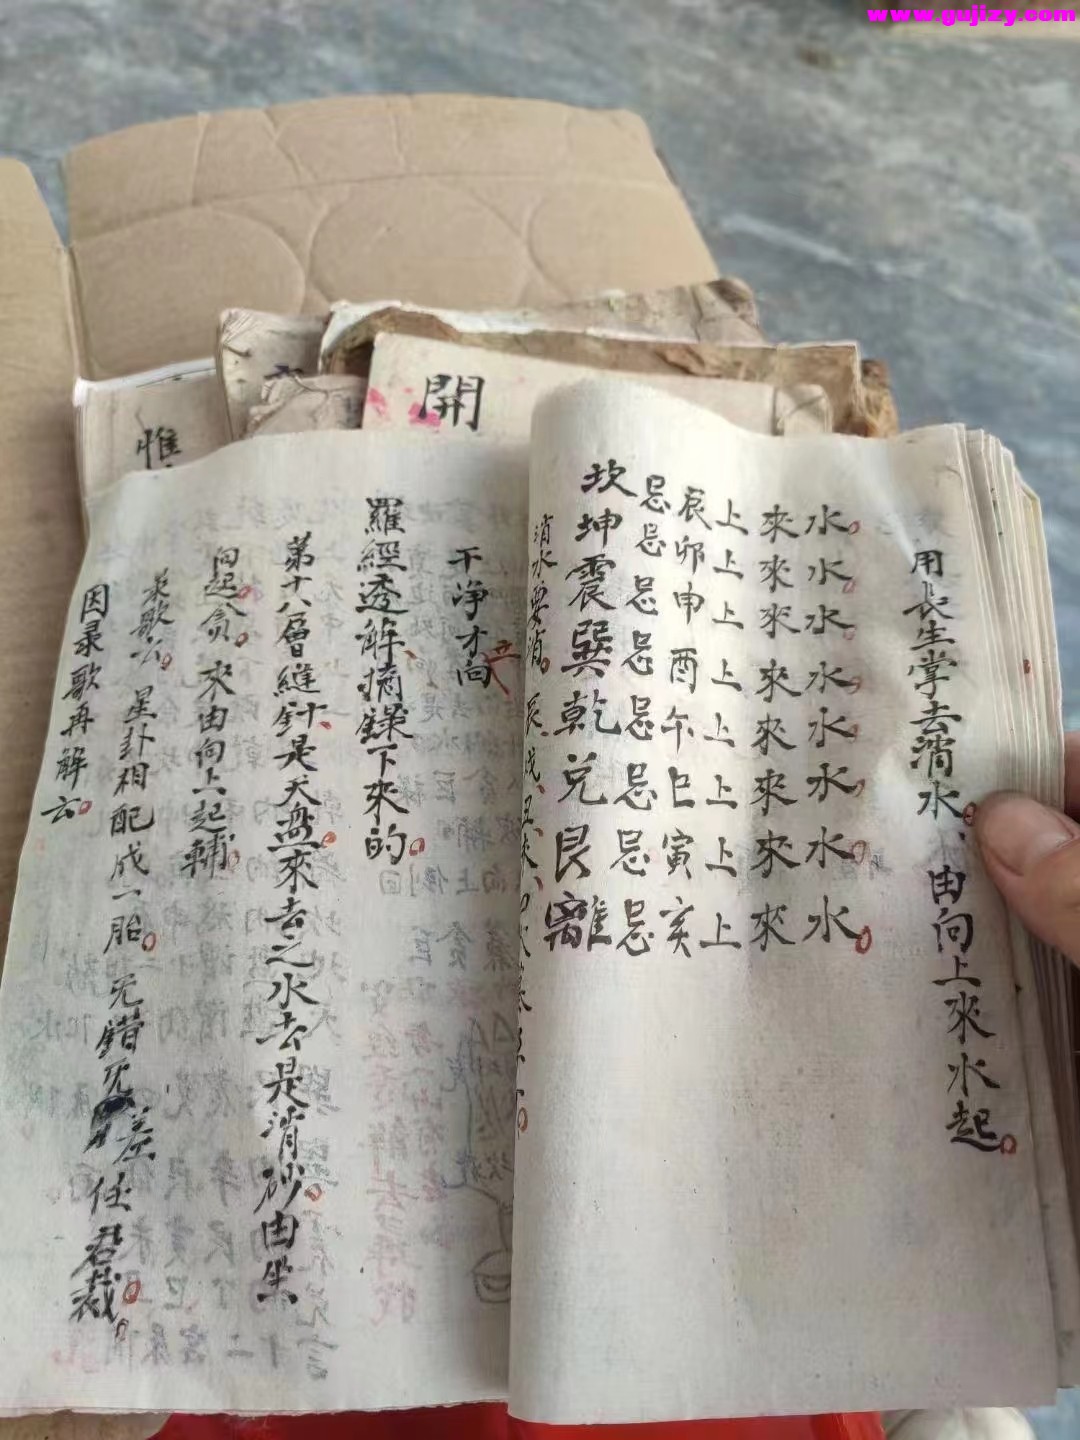 www.gujizy.com
開
惟
用長生掌去消水、由向上來水起。
水。水水水水水水水。
來來來來來來來來
上上上上上上上上
辰卯申酉午巳寅亥
忌忌忌忌忌忌忌忌
坎坤震巽乾兌艮離
消水要消。辰、戌、丑、未、
干净才向
羅經透解摘錄下來的。
第十八層縫針是天盘來去之水去是消砂由坐
向起貪。來由向上起輔。
录歌云。星卦相配成一胎。旡錯旡差任君裁。
因录歌再解云。